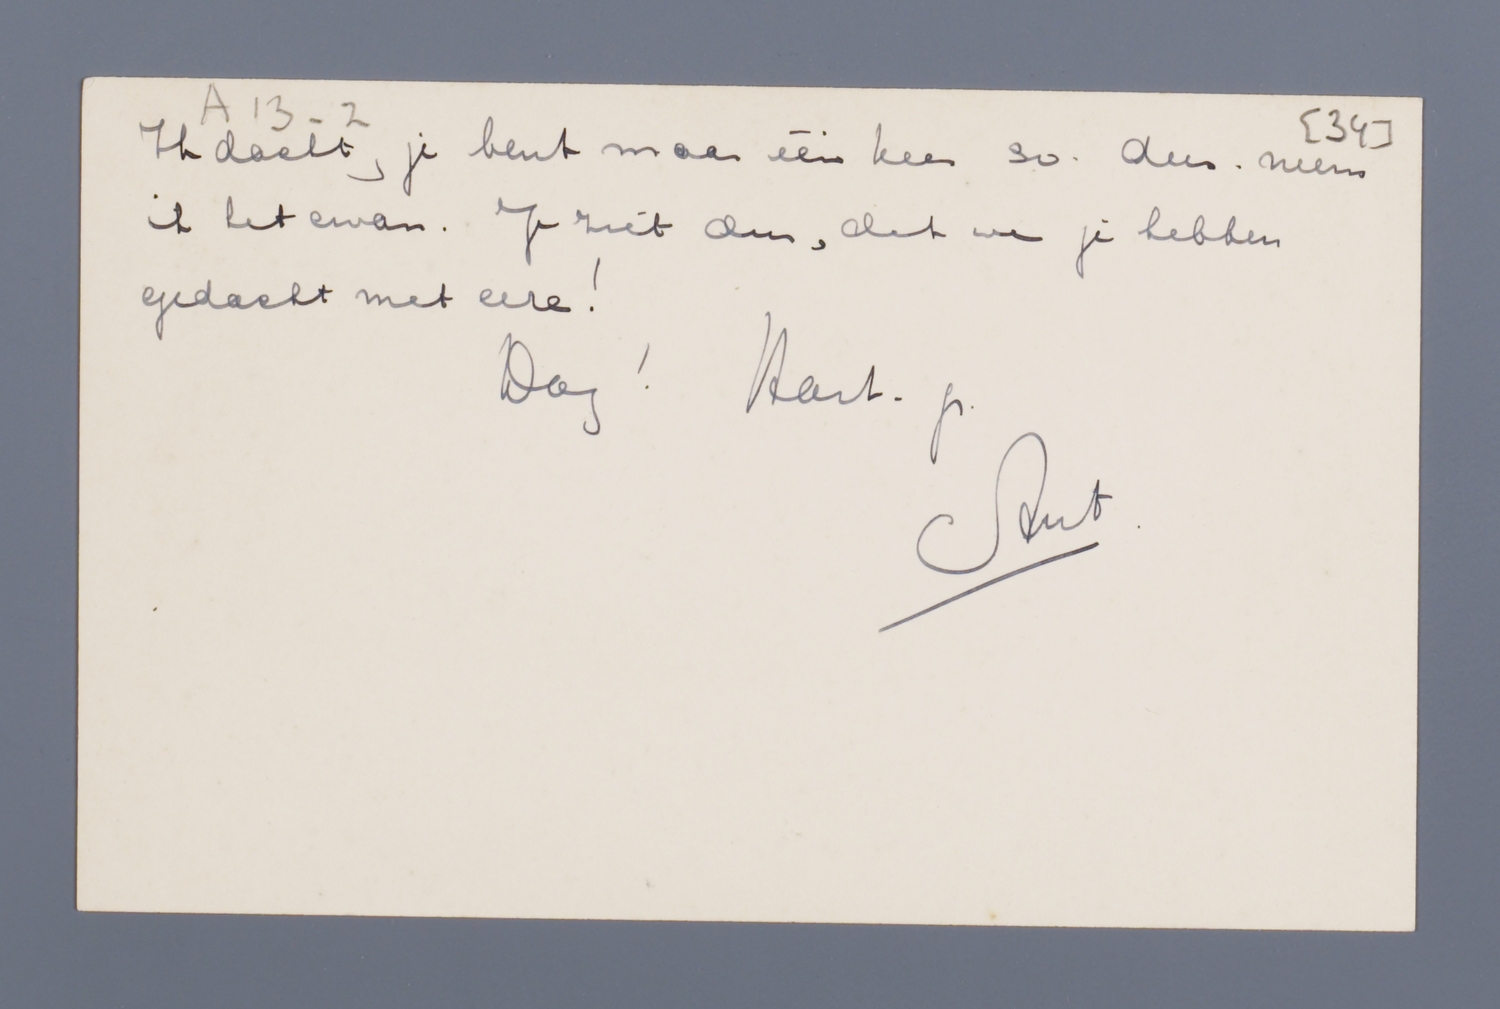 A 13-2
[34]
Ik dacht, je bent maar één keer 50. Dus. neem
ik het ervan. Je ziet dus, dat we je hebben
gedacht met ere!
Dag! Hart. gr.